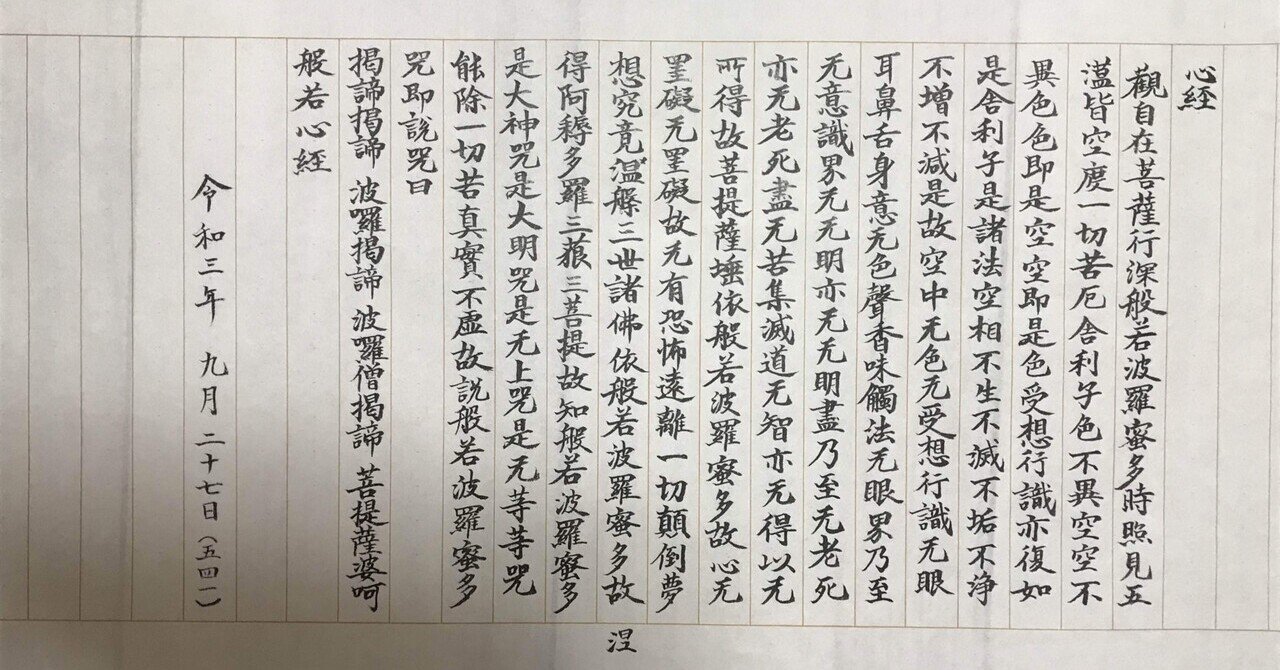 心経
觀自在菩薩行深般若波羅蜜多時照見五
蕰皆空度一切苦厄舎利子色不異空空不
異色色即是空空即是色受想行識亦復如
是舎利子是諸法空相不生不滅不垢不浄
不增不減是故空中无色无受想行識无眼
耳鼻舌身意无色聲香味觸法无眼界乃至
无意識界无无明亦无无明盡乃至无老死
亦无老死盡无苦集滅道无智亦无得以无
所得故菩提薩埵依般若波羅蜜多故心无
罣礙无罣礙故无有恐怖遠離一切顛倒夢
想究竟温槃三世諸佛依般若波羅蜜多故
得阿耨多羅三藐三菩提故知般若波羅蜜多
是大神咒是大明咒是无上咒是无等等咒
能除一切苦真實不虛故説般若波羅蜜多
咒即説咒曰
揭諦揭諦 波囉揭諦 波囉僧揭諦 菩提薩婆呵
般若心経
令和三年 九月 二十七日(五四一)
涅